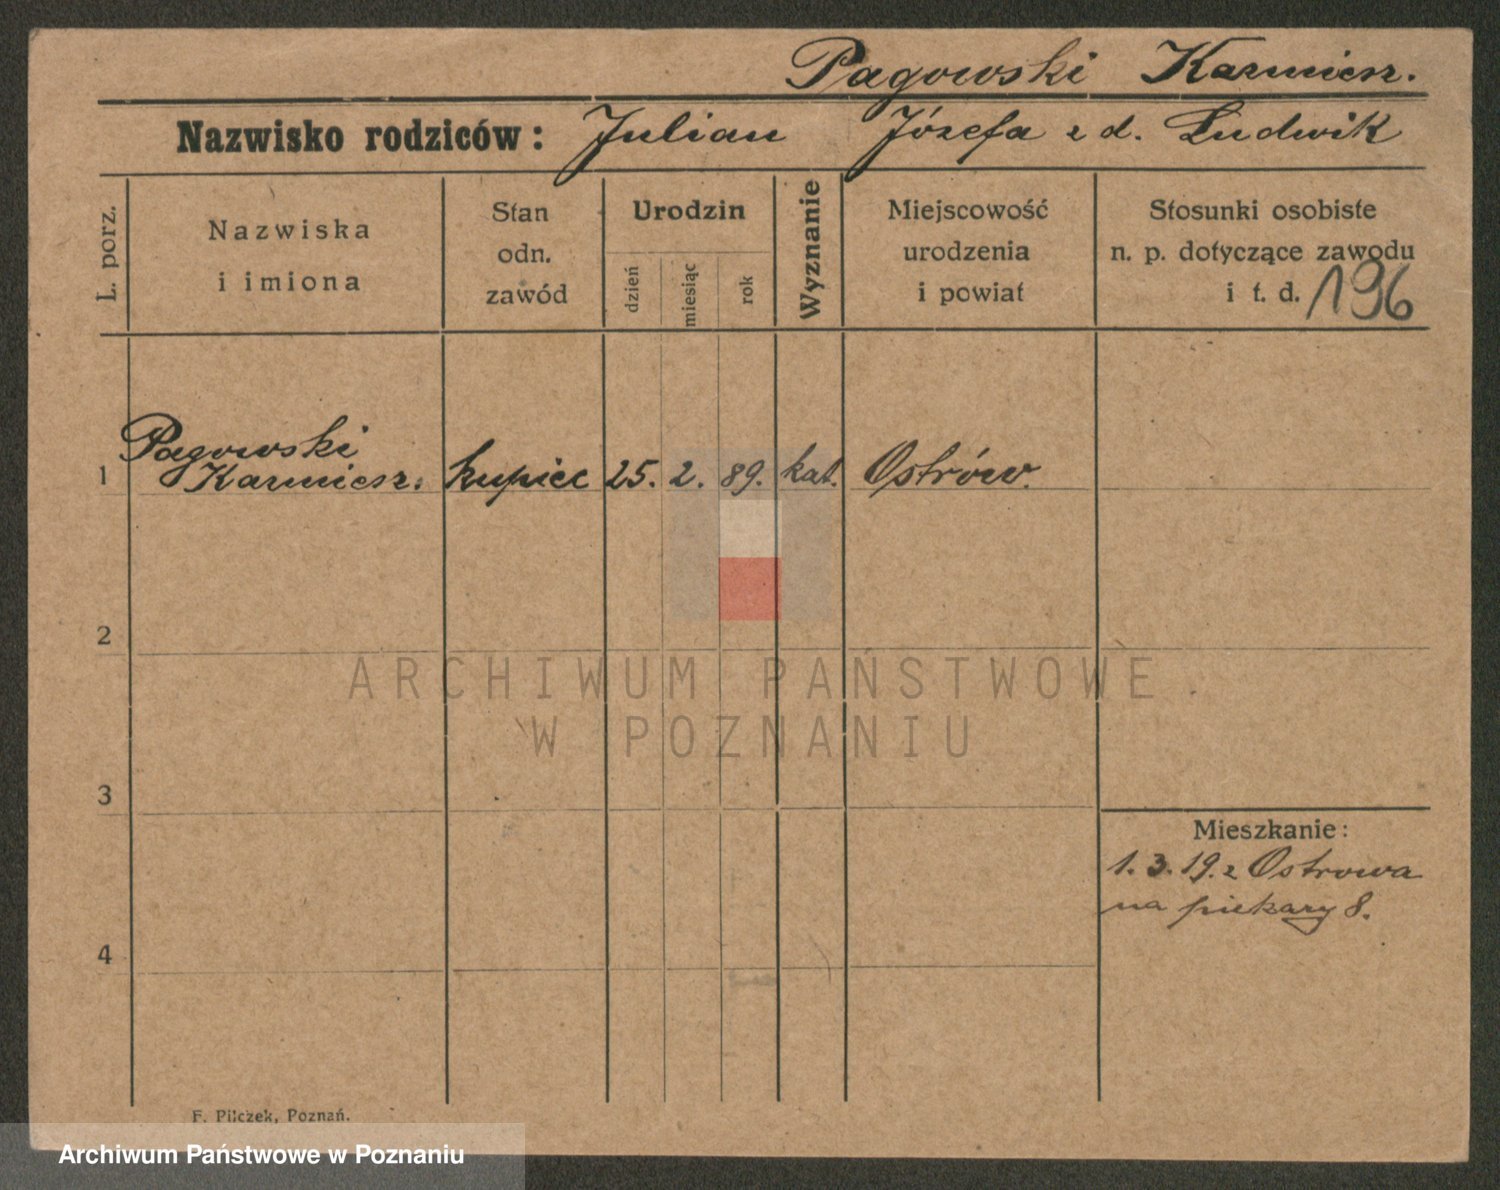 Pagowski Kazmierz.
Nazwisko rodziców: Julian Józefa z d. Ludwik
L. porz.
Nazwiska
i imiona
Stan
odn.
zawód
Urodzin
dzień
miesiąc
rok
Wyznanie
Miejscowość
urodzenia
i powiat
Stosunki osobiste
n. p. dotyczące zawodu
i t. d. 196
Pagowski
1 Kazmierz. kupiec 25. 2. 89. kat. Ostrów.
2
ARCHIWUM PAŃSTWOWE
W POZNANIU
3
Mieszkanie:
1. 3. 19. z Ostrowa
na piekary 8.
4
F. Pilczek, Poznań.
Archiwum Państwowe w Poznaniu